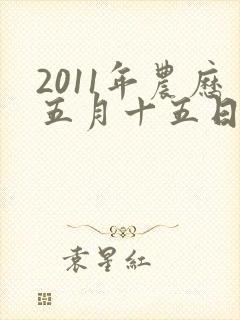 2011年農曆
五月十五日
袁星紅